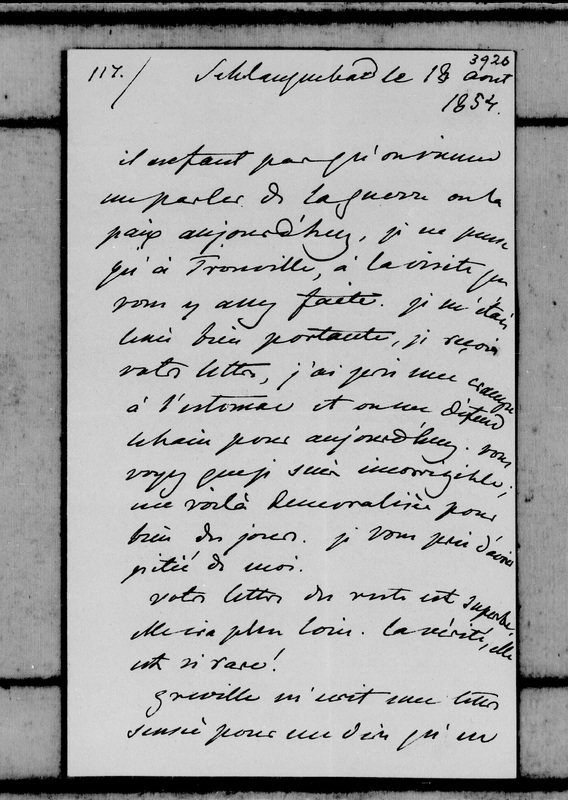 3926
117. / Schlangenbad le 18 Aout
1854.
il ne faut pas qu'on vienne
me parler de la guerre ou la
paix aujourd'huy, je ne pense
qu'à Trouville, à la visite que
vous y avez faite. je m'étais
levée bien portante, je reçois
votre lettre, j'ai pris une crampe
à l'estomac et on me défend
le bain pour aujourd'huy. vous
voyez que je suis incorrigible,
me voilà démoralisée pour
bien des jours. je vous prie d'avoir
pitié de moi.
votre lettre du reste est superbe,
elle ira plus loin. la vérité, elle
est si rare!
Greville m'écrit une lettre
sensée pour me dire qu'en